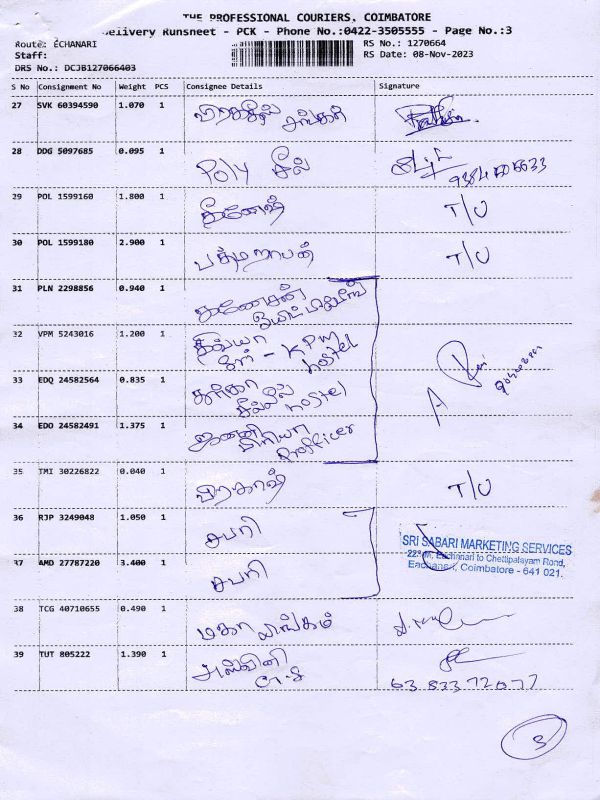 THE PROFESSIONAL COURIERS, COIMBATORE
Delivery Runsheet - PCK - Phone No.:0422-3505555 - Page No.:3
Route: ECHANARI
RS No.: 1270664
Staff:
RS Date: 08-Nov-2023
DRS No.: DCJB127066403
S No Consignment No Weight PCS Consignee Details Signature
27 SVK 60394590 1.070 1 சங்கர்
28 DDG 5097685 0.095 1 Poly சீல்
29 POL 1599160 1.800 1 கணேஷ் T/U
30 POL 1599180 2.900 1 பத்மநாபன் T/U
31 PLN 2298856 0.940 1 கணேசன்
32 VPM 5243016 1.200 1 திவ்யா
KPM hostel
33 EDQ 24582564 0.835 1
hostel
34 EDO 24582491 1.375 1 ஜனனி பிரியா
Profficer
35 TMI 30226822 0.040 1 பிரகாஷ் T/U
36 RJP 3249048 1.050 1 சபரி
37 AMD 27787220 3.400 1 சபரி
SRI SABARI MARKETING SERVICES
Eachanari to Chettipalayam Road,
Eachanari, Coimbatore - 641 021.
38 TCG 40710655 0.490 1 மகா லிங்கம்
39 TUT 805222 1.390 1 அஸ்வினி
6383372077
3